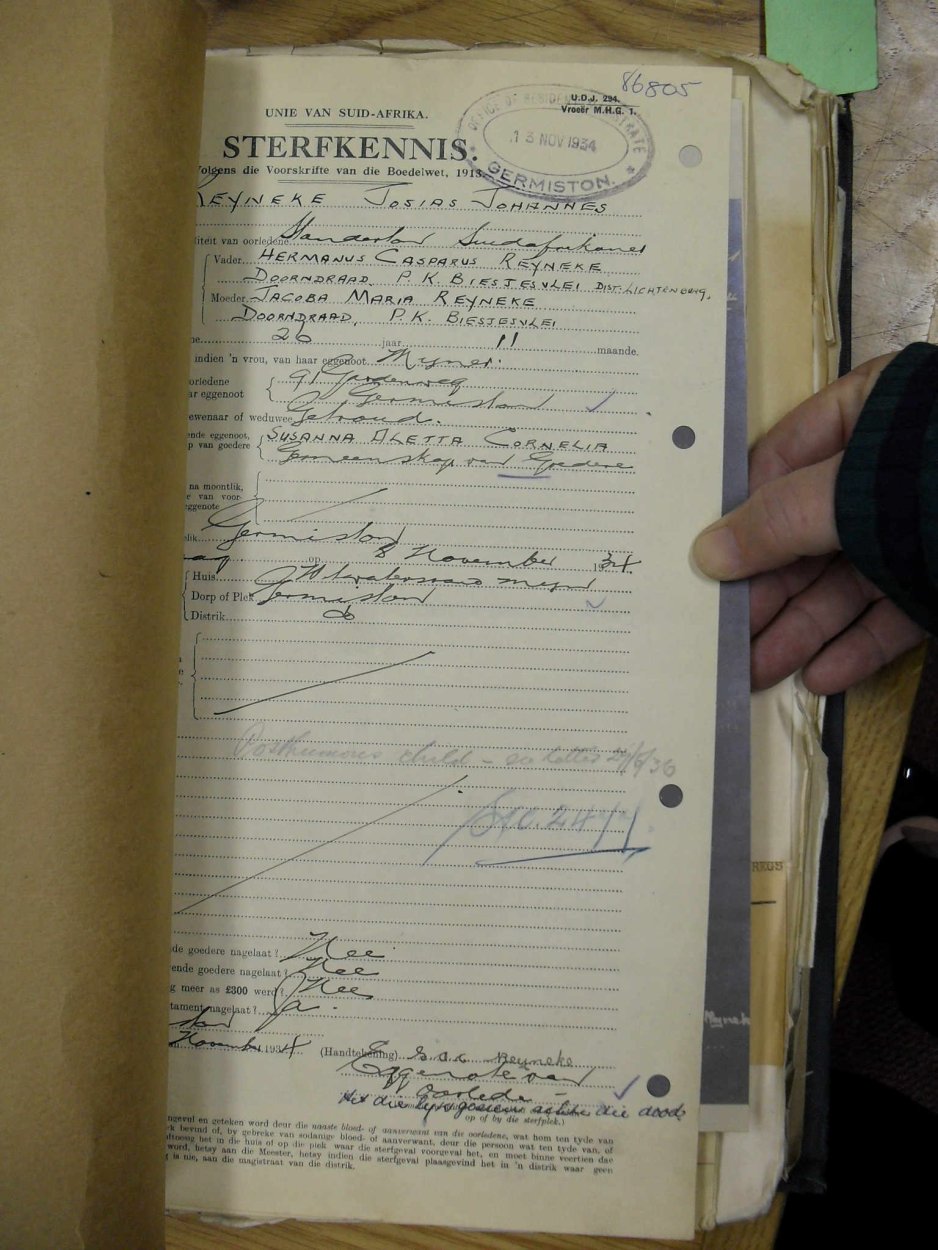 86805
U.D.J. 294.
Vroeër M.H.G. 1.
UNIE VAN SUID-AFRIKA.
OFFICE OF RESIDENT MAGISTRATE
13 NOV 1934
GERMISTON.
STERFKENNIS.
Volgens die Voorskrifte van die Boedelwet, 1913.
REYNEKE JOSIAS JOHANNES
liteit van oorledene Standerton Suidafrikaner
Vader HERMANUS CASPARUS REYNEKE
DOORNDRAAD, P.K. BIESJESVLEI DIST. LICHTENBURG.
Moeder JACOBA MARIA REYNEKE
DOORNDRAAD, P.K. BIESJESVLEI
jaar 11 maande.
indien 'n vrou, van haar eggenoot Myner.
oorledene 91
ar eggenoot Germiston
ewenaar of weduwee Getroud.
ende eggenoot, SUSANNA ALETTA CORNELIA
p van goedere Gemeenskap van Goedere
na moontlik,
e van voor-
eggenote
elik Germiston
op 8 November 1934
Huis Witwatersrand Myn
Dorp of Plek Germiston
Distrik do
Posthumous child - see letter
de goedere nagelaat? Nee
ende goedere nagelaat? Nee
g meer as £300 werd? Nee
tament nagelaat? Ja.
ton
November 1934 (Handtekening) S.A.C. Reyneke
Eggenote van
oorlede -
Het die lyk gesien achter die dood
op of by die sterfplek.)
ngeval en geteken word deur die naaste bloed- of aanverwant van die oorledene, wat hom ten tyde van
k bevind of, by gebreke van sodanige bloed- of aanverwant, deur die persoon wat ten tyde van, of
het in die huis of op die plek waar die sterfgeval voorgeval het, en moet binne veertien dae
word, hetsy aan die Meester, hetsy indien die sterfgeval plaasgevind het in 'n distrik waar geen
g is nie, aan die magistraat van die distrik.